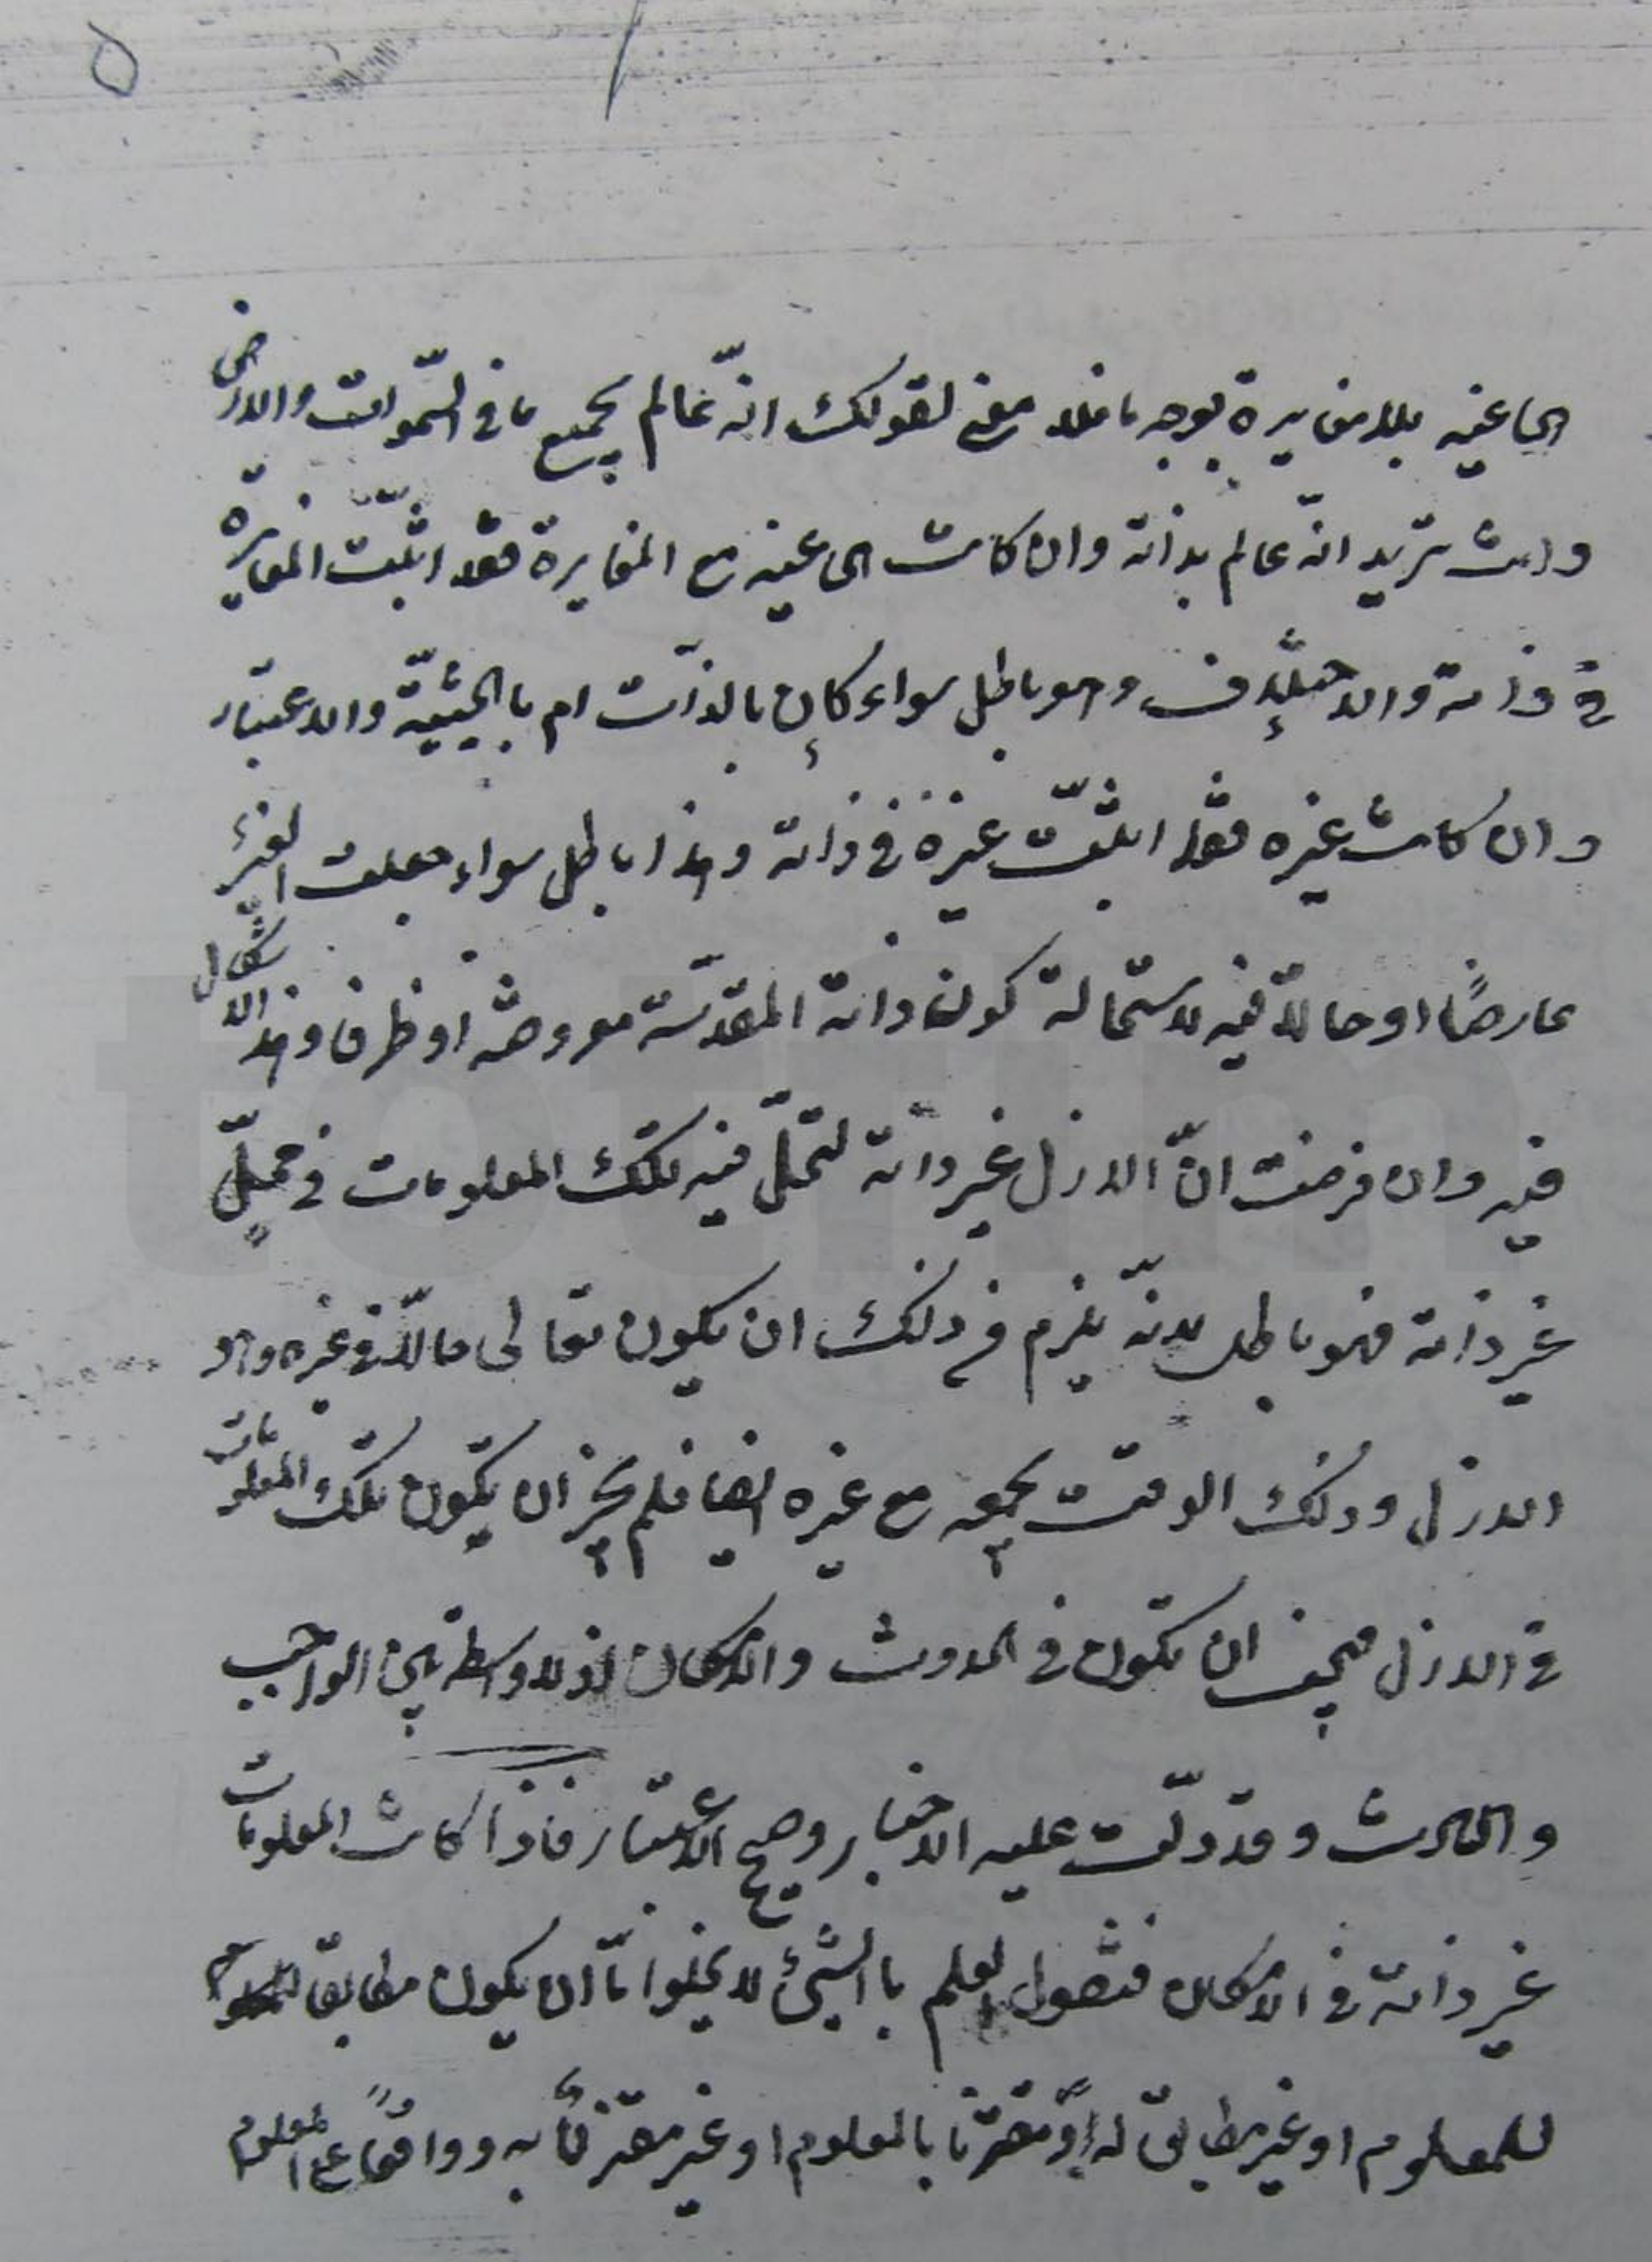 ٥
الى عينه بلا مغايرة بوجه ما فلا معنى لقولك انّه عالم بجميع ما فى السّموات والارض
وانت تريد انّه عالم بذاته وان كانت الى عينه مع المغايرة فقد اثبتّ المغايرة
فى ذاته والاختلاف وهو باطل سواء كان بالذات ام بالحيثيّة والاعتبار
وان كانت غيره فقد اثبتّ غيره فى ذاته وهذا باطل سواء جعلت الغير
عارضًا او حالاّ فيه لاستحالة كون ذاته المقدّسة معروضة او ظرفا وهذا لا شكال
فيه وان فرضت انّ الازل غير ذاته لتحلّ فيه تلك المعلومات فى محلٍّ
غير ذاته فهو باطل لانّه يلزم فى ذلك ان يكون تعالى حالاّ فى غيره وهو
الازل وذلك الوقت يجمعه مع غيره ايضا فلم يجز ان يكون تلك المعلومات
فى الازل فيجب ان تكون فى الحدوث والامكان اذ لا واسطة بين الواجب
والحادث وقد دلّت عليه الاخبار وصحيح الاعتبار فاذا كانت المعلومات
غير ذاته فى الامكان فنقول العلم باالشيئ لا يخلوا امّا ان يكون مطابقا
للمعلوم او غير مطابق له او مقترنا بالمعلوم او غير مقترنًا به وواقعًا على المعلوم